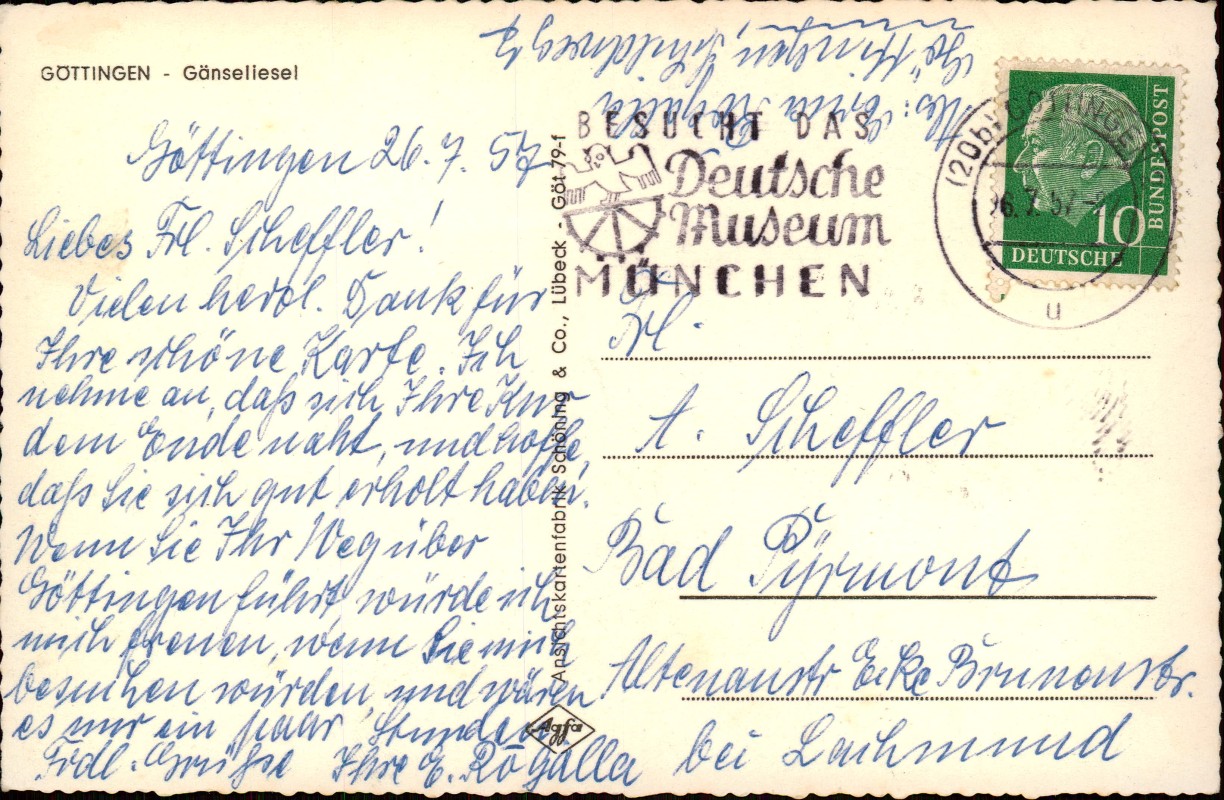 GÖTTINGEN - Gänseliesel
Göttingen 26.7.57
Liebes Frl. Scheffler!
Vielen herzl. Dank für
Ihre schöne Karte. Ich
nehme an, daß sich Ihre Kur
dem Ende naht, und hoffe,
daß Sie sich gut erholt haben.
Wenn Sie Ihr Weg über
Göttingen führt, würde ich
mich freuen, wenn Sie mich
besuchen würden, und wären
es nur ein paar Stunden.
Frdl. Grüße Ihre E. Rogalla
Ansichtskartenfabrik Schöning & Co., Lübeck - Göt 79-f
Agfa
Abs: Erna Rogalla
Göttingen,
BESUCHT DAS
Deutsche
Museum
MÜNCHEN
(20b) GÖTTINGEN
26.7.57
u
10
DEUTSCHE
BUNDESPOST
Frl.
A. Scheffler
Bad Pyrmont
Altenaustr Ecke Brunnenstr.
bei Lachmund